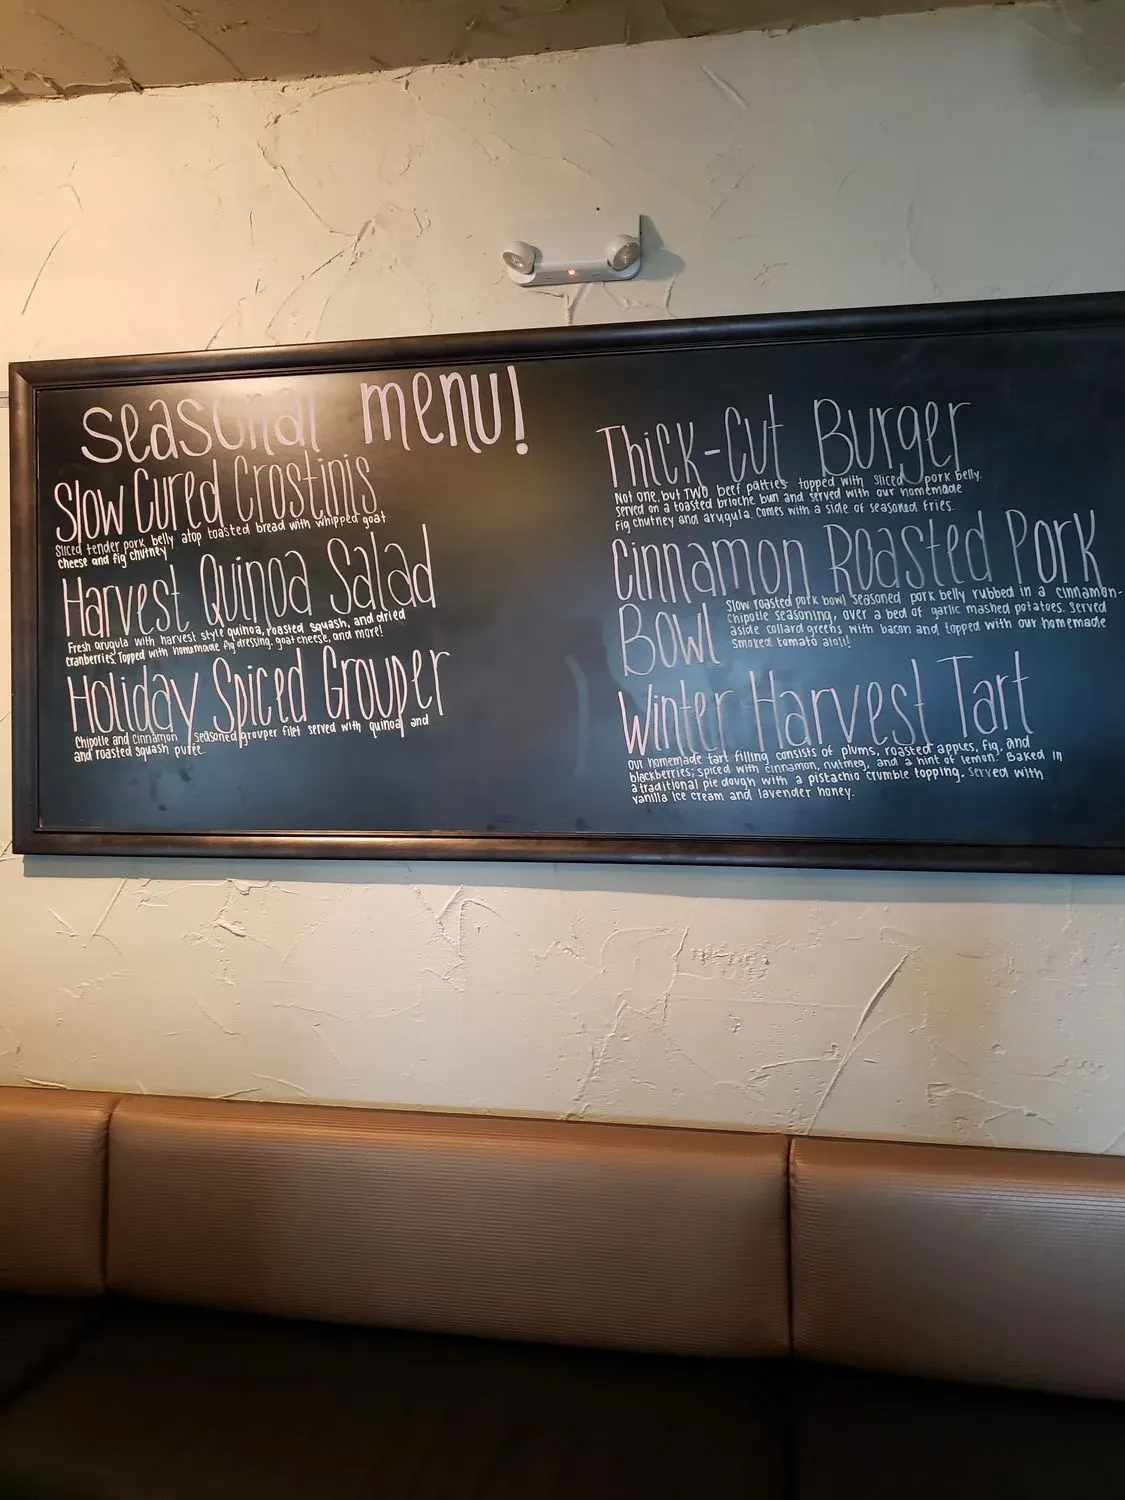 seasonal menu!
Slow Cured Crostinis
Sliced tender pork belly atop toasted bread with whipped goat
cheese and fig chutney
Harvest Quinoa Salad
Fresh arugula with harvest style quinoa, roasted squash, and dried
cranberries. Topped with homemade fig dressing, goat cheese, and more!
Holiday Spiced Grouper
Chipotle and cinnamon seasoned grouper filet served with quinoa and
and roasted squash purée.
Thick-Cut Burger
Not one, but TWO beef patties topped with sliced pork belly.
served on a toasted brioche bun and served with our homemade
fig chutney and arugula. Comes with a side of seasoned fries.
Cinnamon Roasted Pork
Bowl
Slow roasted pork bowl. Seasoned pork belly rubbed in a cinnamon-
chipotle seasoning, over a bed of garlic mashed potatoes. Served
aside collard greens with bacon and topped with our homemade
smoked tomato aioli!
Winter Harvest Tart
Our homemade tart filling consists of plums, roasted apples, fig, and
blackberries; spiced with cinnamon, nutmeg, and a hint of lemon. Baked in
a traditional pie dough with a pistachio crumble topping. Served with
vanilla ice cream and lavender honey.